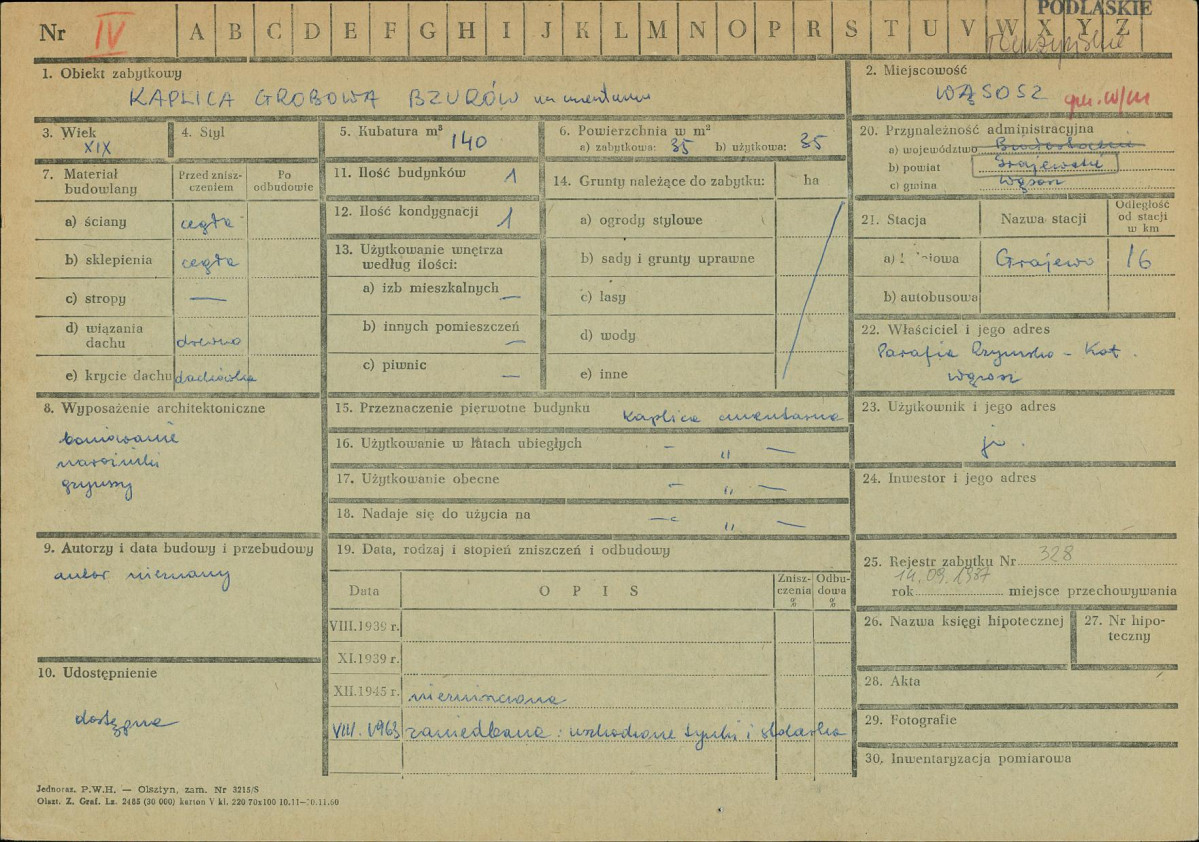 PODLASKIE
Nr IV A B C D E F G H I J K L M N O P R S T U V W X Y Z
Łomżyńskie
1. Obiekt zabytkowy
KAPLICA GROBOWA BZURÓW na cmentarzu
2. Miejscowość
WĄSOSZ gm. w/m
3. Wiek
XIX
4. Styl
5. Kubatura m³
140
6. Powierzchnia w m²
a) zabytkowa: 35 b) użytkowa: 35
20. Przynależność administracyjna
a) województwo Białostockie
b) powiat Grajewski
c) gmina Wąsosz
7. Materiał budowlany
Przed zniszczeniem
Po odbudowie
a) ściany cegła
b) sklepienia cegła
c) stropy —
d) wiązania dachu drewno
e) krycie dachu dachówka
11. Ilość budynków 1
12. Ilość kondygnacji 1
13. Użytkowanie wnętrza według ilości:
a) izb mieszkalnych —
b) innych pomieszczeń —
c) piwnic —
14. Grunty należące do zabytku: ha
a) ogrody stylowe
b) sady i grunty uprawne
c) lasy
d) wody
e) inne
21. Stacja
Nazwa stacji
Odległość od stacji w km
a) Grajewo 16
b) autobusowa
22. Właściciel i jego adres
Parafia Rzymsko-Kat.
Wąsosz
8. Wyposażenie architektoniczne
boniowanie
narożniki
gzymsy
15. Przeznaczenie pierwotne budynku kaplica cmentarna
16. Użytkowanie w latach ubiegłych — „ —
17. Użytkowanie obecne — „ —
18. Nadaje się do użycia na — „ —
23. Użytkownik i jego adres
jw.
24. Inwestor i jego adres
9. Autorzy i data budowy i przebudowy
autor nieznany
10. Udostępnienie
dostępna
19. Data, rodzaj i stopień zniszczeń i odbudowy
Data
O P I S
Zniszczenia %
Odbudowa %
VIII.1939 r.
XI.1939 r.
XII.1945 r. niezniszczona
VIII.1963 zaniedbana: uszkodzone tynki i stolarka
25. Rejestr zabytku Nr 328
14.09.1987
rok miejsce przechowywania
26. Nazwa księgi hipotecznej
27. Nr hipoteczny
28. Akta
29. Fotografie
30. Inwentaryzacja pomiarowa
Jednoraz. P.W.H. — Olsztyn, zam. Nr 3215/S
Olszt. Z. Graf. Lz. 2485 (30 000) karton V kl. 220 70x100 10.11—30.11.60